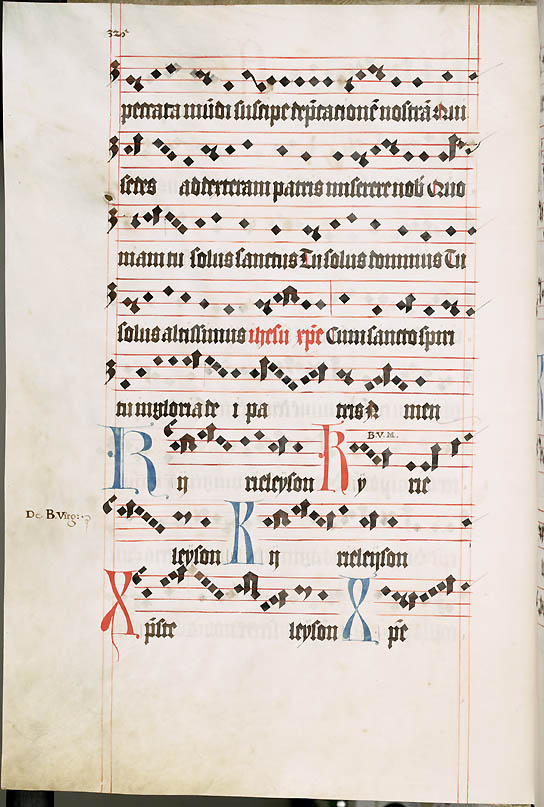 325
peccata mūdi suscipe dep̄cacionē nostrā Qui
sedes ad dexteram patris miserere nob̄ Quo
niam tu solus sanctus Tu solus dominus Tu
solus altissimus ihesu xp̄e Cum sancto spiri
tu in gloria de i pa tris A men
B.V.M.
K y rieleyson K y rie
De B. Virg:
leyson K y rieleyson
X p̄ste leyson X p̄e